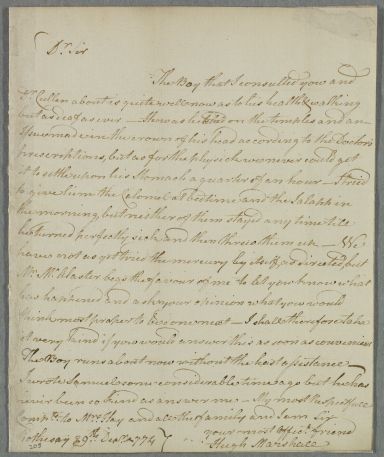 Dr. Sir
The Boy that I consulted you and
Dr. Cullen about is quite well now as to his health & walking
but as deaf as ever — He was blistered on the temples and an
Issue made in the crown of his head according to the Doctors
prescriptions, but as for the physick we never could get
it to settle upon his Stomach a quarter of an hour — I tried
to give him the Calomel at bedtime and the Jalap in
the morning, but neither of them stayd any time till
he turned perfectly sick and then threw them up — We
have not as yet tried the mercury by itself as directed, but
Mr. McAlaster begs the favour of me to let you know what
has happened and ask your opinion what you would
think most proper to be done next — I shall therefore take
it very kind if you would answer this as soon as convenient
The Boy runs about now without the least assistance —
I wrote Samuel some considerable time ago but he has
never been so kind as answer me — My most respectful
Compts. to Mrs. Hay and all the family, and I am Sir
Rothesay 29th. Sepr. 1774 your most Obedt. friend
Hugh Marshall